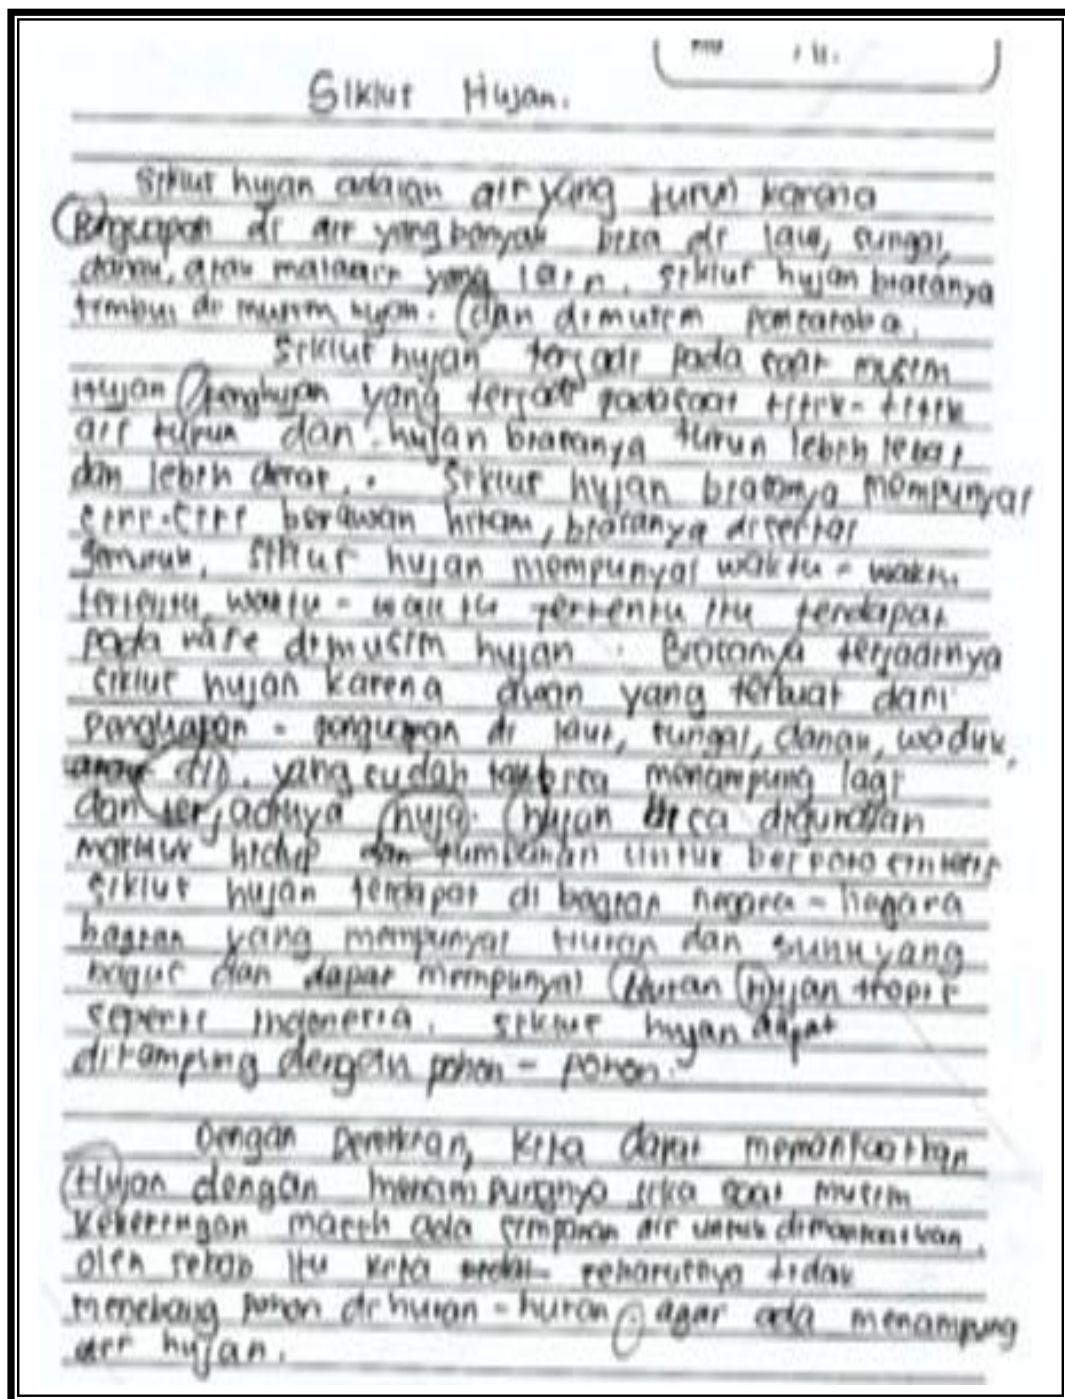 Siklus Hujan.
Siklus hujan adalah air yang turun karena
Penguapan di air yang banyak bisa di laut, sungai,
danau, atau mataair yang lain. Siklus hujan biasanya
timbul di musim hujan. dan dimusim pancaroba.
Siklus hujan terjadi pada saat musim
Hujan / penghujan yang terjadi padasaat titik-titik
air turun dan hujan biasanya turun lebih lebat
dan lebih deras.. Siklus hujan biasanya mempunyai
ciri-ciri berawan hitam, biasanya disertai
gemuruh, siklus hujan mempunyai waktu - waktu
tertentu, waktu - waktu tertentu itu terdapat
pada dimusim hujan. Biasanya terjadinya
siklus hujan karena awan yang terbuat dari
penguapan - penguapan di laut, sungai, danau, waduk,
atau dll. yang sudah tak bisa menampung lagi
dan terjadinya huja. hujan bisa digunakan
makhluk hidup dan tumbuhan untuk berfotosintesis
siklus hujan terdapat di bagian negara - negara
bagian yang mempunyai Hutan dan suhu yang
bagus dan dapat mempunyai Hutan Hujan tropis
seperti Indonesia. siklus hujan dapat
ditampung dengan pohon - pohon.
Dengan Demikian, kita dapat memanfaatkan
Hujan dengan menampungnya jika saat musim
kekeringan masih ada simpanan air untuk dimanfaatkan.
oleh sebab itu kita seharusnya tidak
menebang pohon dihutan - hutan. agar ada menampung
air hujan.